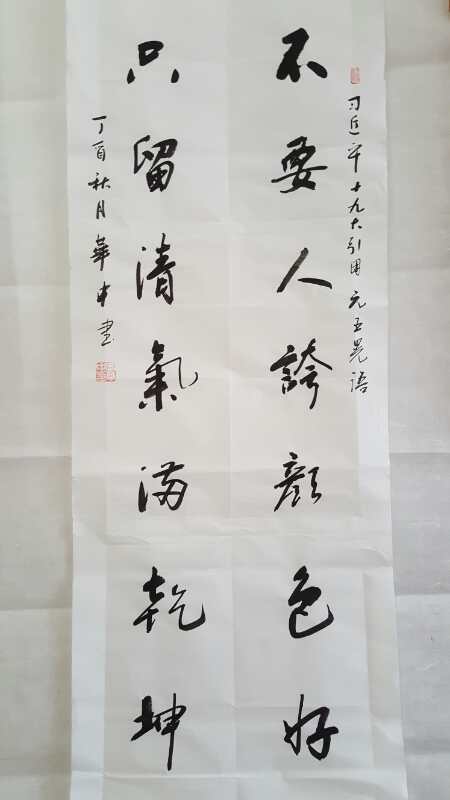 习近平十九大引用元王冕语
不要人誇顔色好
只留清氣满乾坤
丁酉秋月華中书